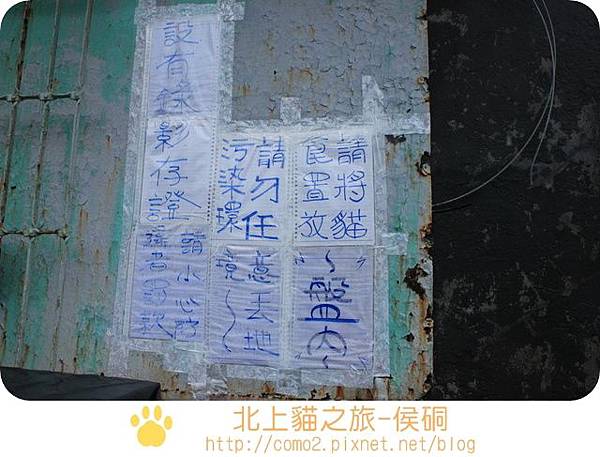 請將貓
食置放
～盤內～
請勿任意丟地
污染環境～～
設有錄影存證
請小心
違者罰款
北上貓之旅-侯硐
http://como2.pixnet.net/blog